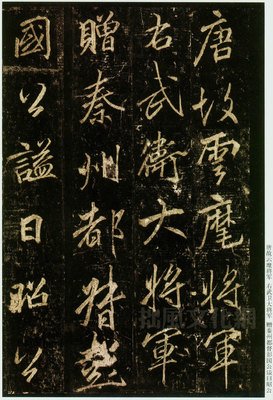 唐故雲麾將軍
右武衛大將軍
贈秦州都督彭
國公謚曰昭公
唐故云麾将军 右武卫大将军 赠秦州都督彭国公谥曰昭公